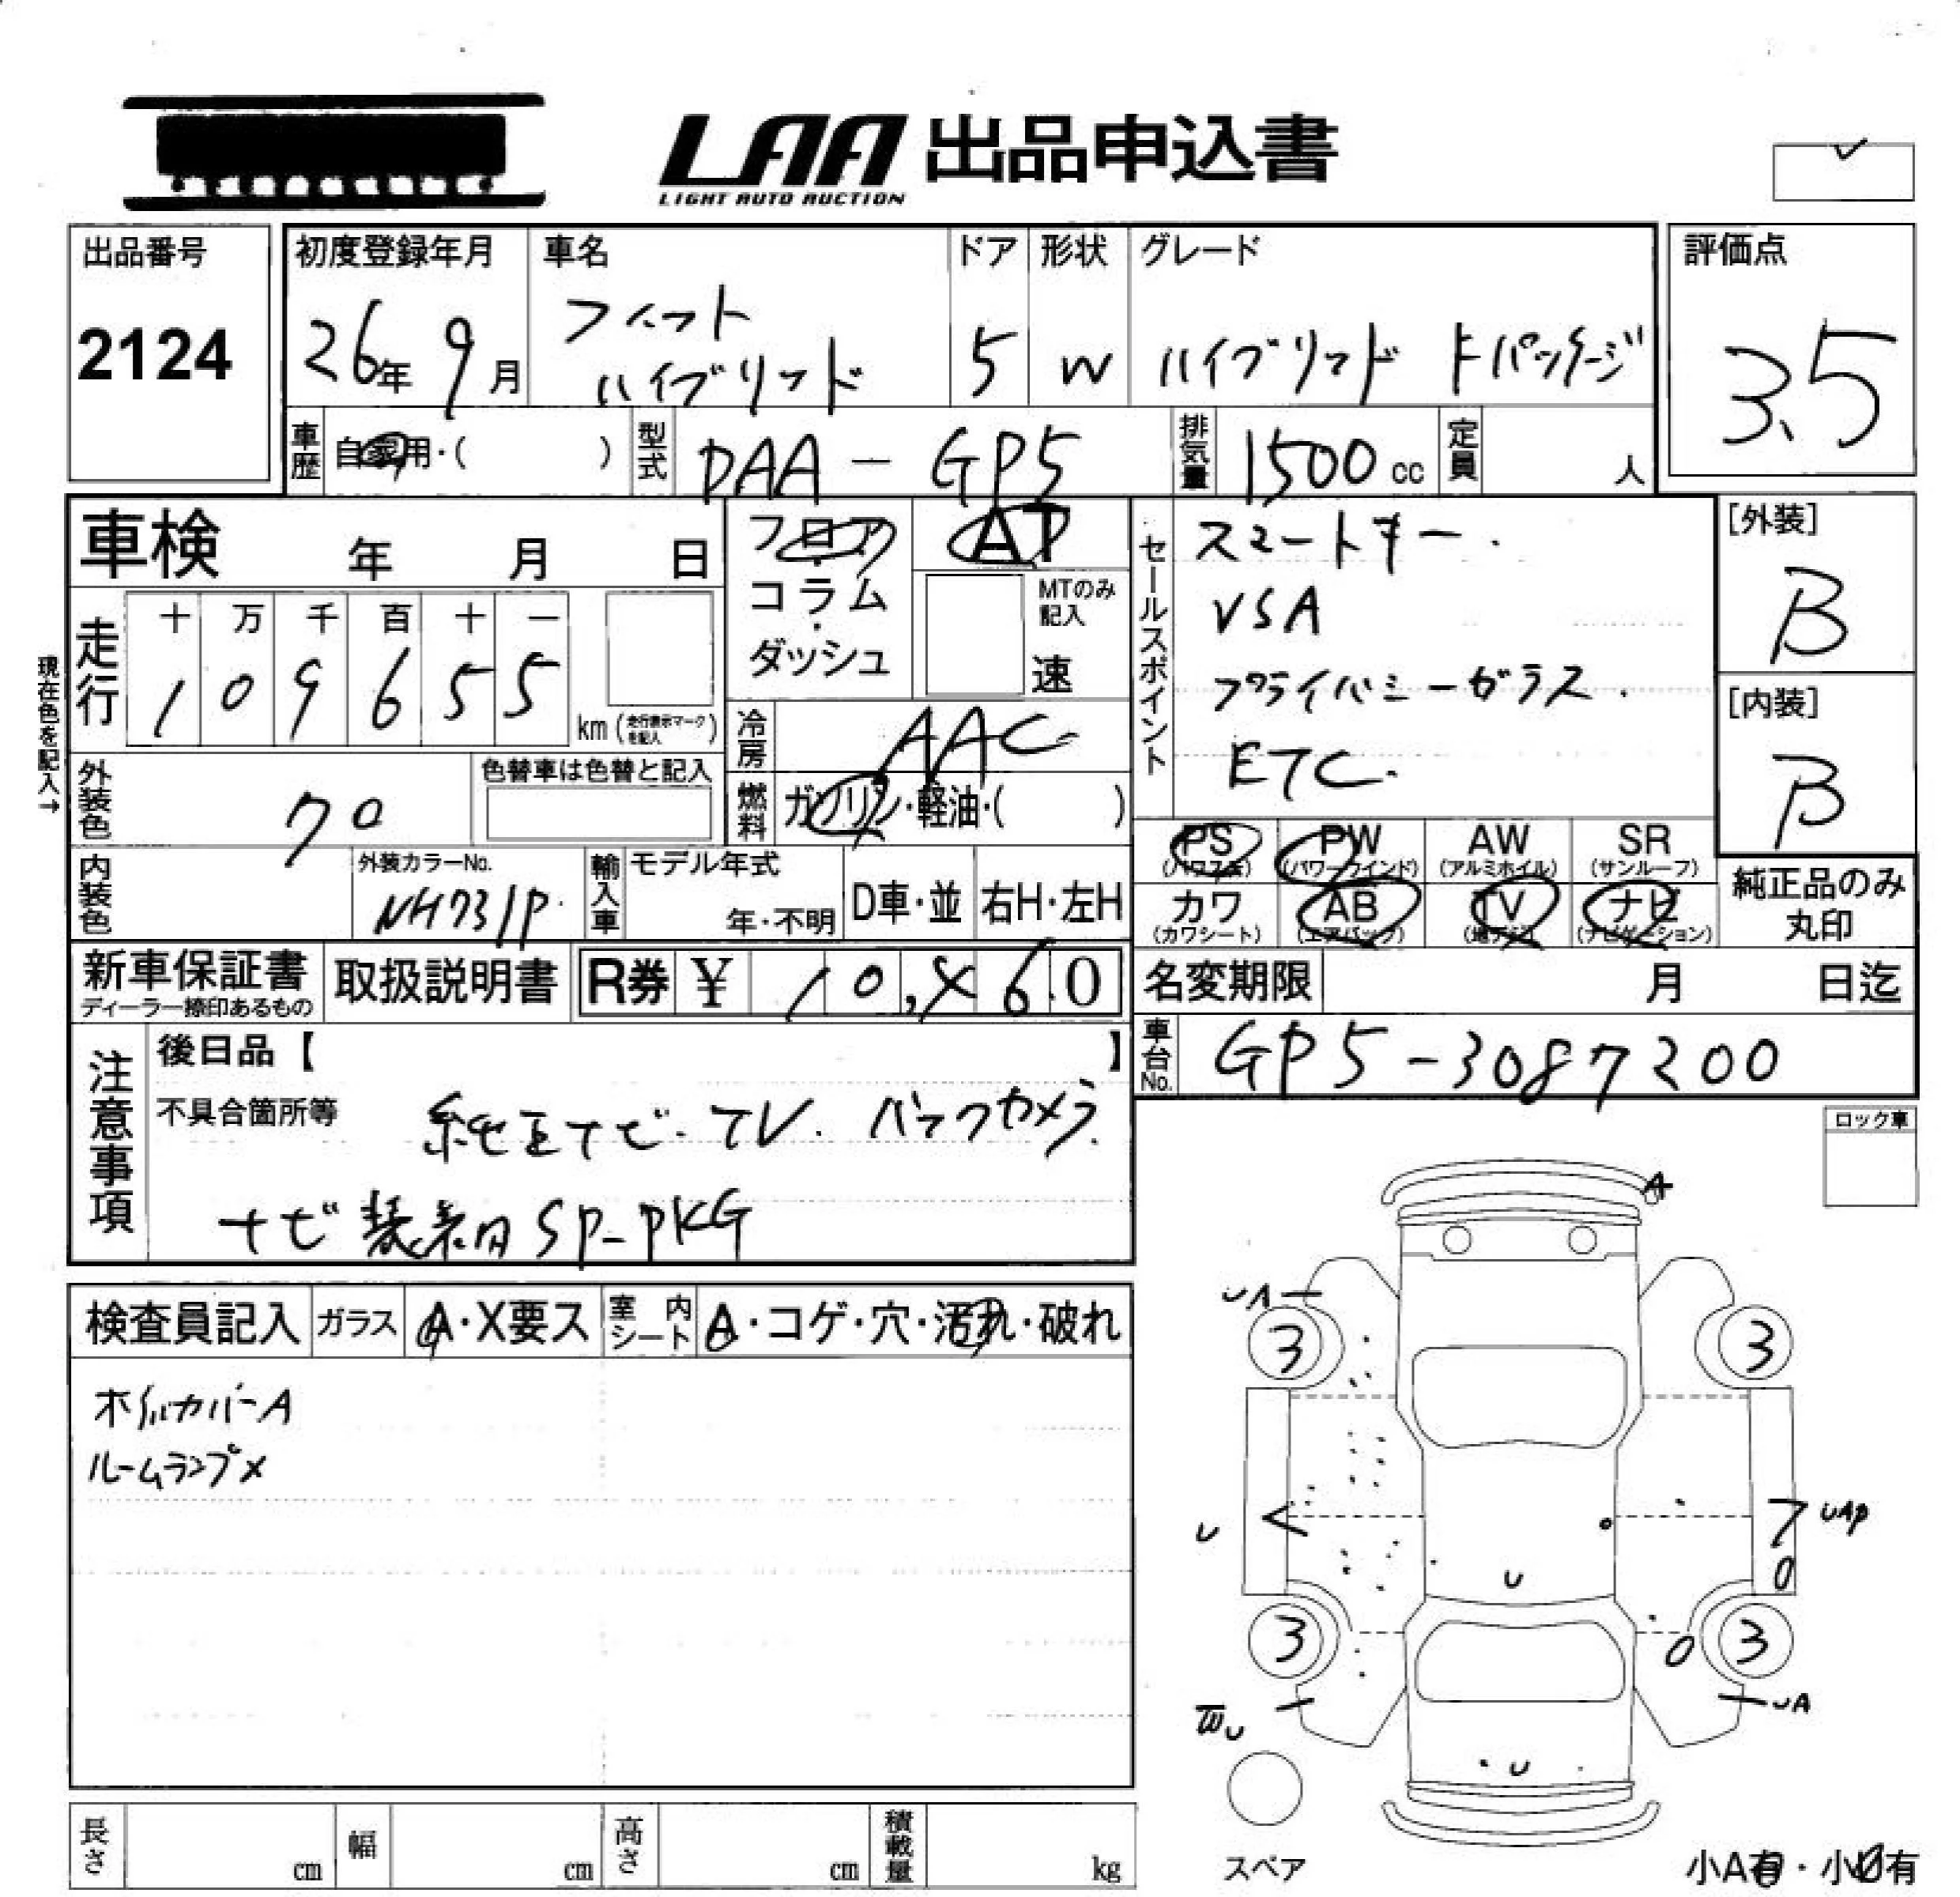 LAA 出品申込書
LIGHT AUTO AUCTION
出品番号
2124
初度登録年月
26年 9月
車名
フィット
ハイブリッド
ドア
5
形状
W
グレード
ハイブリッド Fパッケージ
評価点
3.5
車歴
自家用・( )
型式
DAA-GP5
排気量
1500 cc
定員
人
車検 年 月 日
走行
十 万 千 百 十 一
1 0 9 6 5 5
km (走行表示マークを記入)
現在色を記入→
フロア
・
コラム
・
ダッシュ
AT
MTのみ
記入
速
冷房
AAC
燃料
ガソリン・軽油・( )
セールスポイント
スマートキー.
VSA
プライバシーガラス.
ETC.
[外装]
B
[内装]
B
外装色
クロ
色替車は色替と記入
内装色
外装カラーNo.
NH731P.
輸入車
モデル年式
年・不明
D車・並
右H・左H
PS
(パワステ)
PW
(パワーウインド)
AW
(アルミホイル)
SR
(サンルーフ)
カワ
(カワシート)
AB
(エアバック)
TV
(地デジ)
ナビ
(ナビゲーション)
純正品のみ
丸印
新車保証書
ディーラー捺印あるもの
取扱説明書
R券 ¥ 10,860
名変期限 月 日迄
車台No.
GP5-3087200
注意事項
後日品【 】
不具合箇所等
純正ナビ. TV. バックカメラ.
ナビ装着用SP-PKG
ロック車
検査員記入
ガラス
A・X要ス
室内シート
A・コゲ・穴・汚れ・破れ
ホイルカバーA
ルームランプX
A
UA
3
3
U
UAP
U
3
3
UA
U
スペア
長さ
cm
幅
cm
高さ
cm
積載量
kg
小A有・小U有